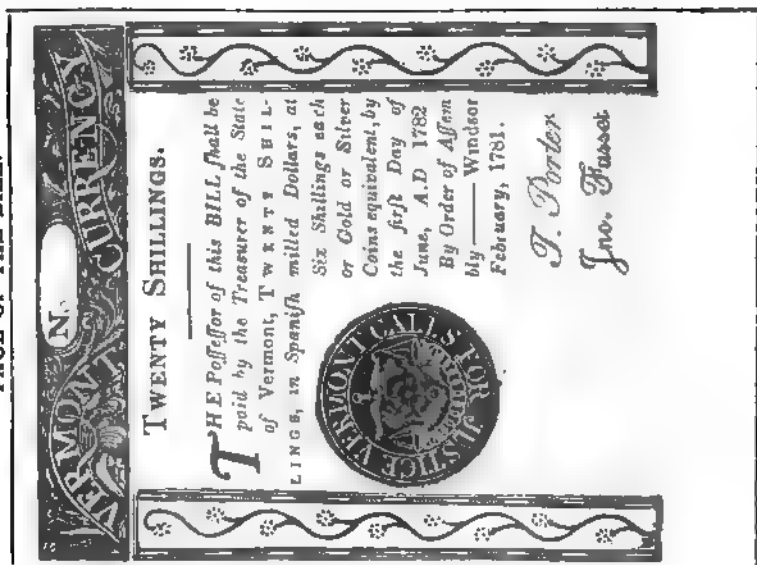 FACE OF THE BILL.
N.
VERMONT CURRENCY
TWENTY SHILLINGS.
THE Poſſeſſor of this BILL ſhall be
paid by the Treaſurer of the State
of Vermont, TWENTY SHIL-
LINGS, in Spaniſh milled Dollars, at
Six Shillings each
or Gold or Silver
Coins equivalent, by
the firſt Day of
June, A.D 1782
By Order of Aſſem
bly — Windsor
February, 1781.
VERMONT CALLS FOR JUSTICE
T. Porter
Jno. Fasset